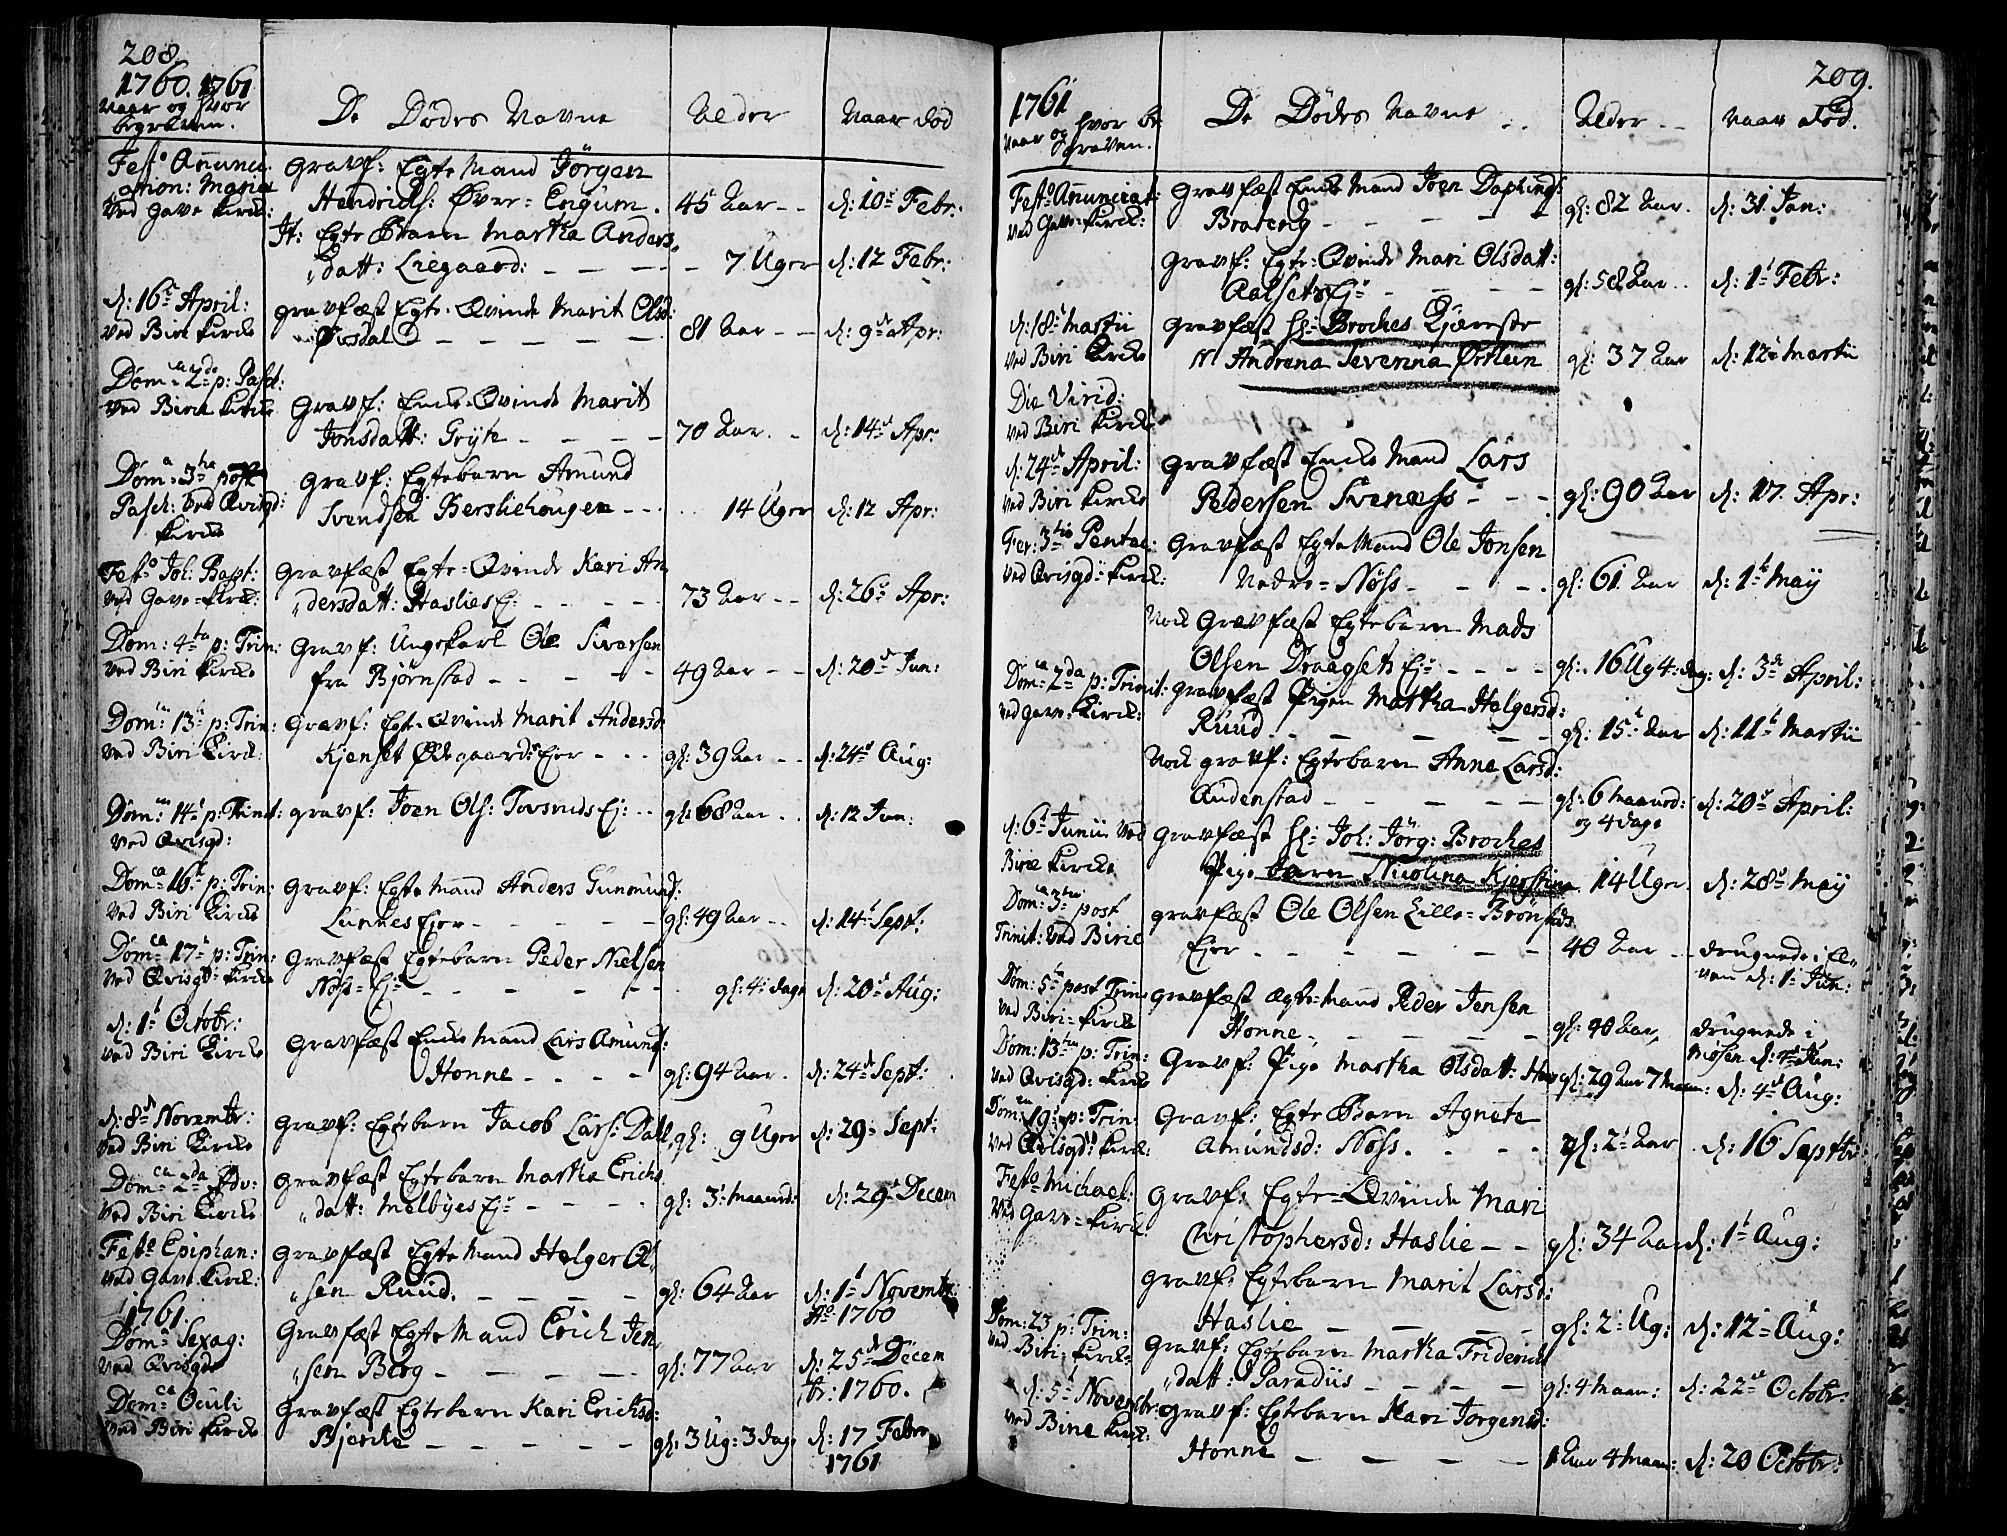 208.
1760. 1761
Naar og hvor
begraven.
De Dødes Navne
Alder
Naar død
Festo Anuncia-
ation: Mariæ
ved Gave Kirck:
Gravf: Egte Mand Jörgen
Hendrichs: Øver-Engum. 45 Aar - - d: 10 Febr:
It: Egte Barn Martha Anders
datt: Liegaard: - - - - 7 Uger d: 12 Febr:
d: 16 April:
ved Biri Kircke
gravfæst Egte Qvinde Marit Olsd:
Øvisdal - - - - - 81 Aar - - d: 9de Apr:
Dom: 2de p: Pasch:
ved Birie Kircke
Gravf: Encke-Qvinde Marit
Jonsdatt: Gryte - - - - 70 Aar. - d: 14 Apr:
Dom: 3tia post
Pasch: ved Qvisgd:
Kircke
Gravf: Egtebarn Amund
Svendsen Bersliehougen - - - 14 Uger d: 12 Apr:
Festo Joh: Bapt:
ved Gave-Kirck:
Gravfæst Egte-Qvinde Kari An-
dersdatt: Haslies Ej: - - - - 73 Aar - - d: 26 Apr:
Dom: 4ta p: Trin:
ved Biri Kircke
Gravf: Ungekarl Ole Siversen
fra Bjørnstad - - - - - 49 Aar - - d: 20 Jun:
Dom: 13 p: Trin:
ved Biri Kirck:
Gravf: Egte-Qvinde Marit Andersd:
Kjenset Ødegaards Ejer - - - gl: 39 Aar - - d: 24 Aug:
Dom: 14 p: Trinit:
ved Qvisgd:
gravf: Joen Ols: Tovsruds Ej: - - gl: 68 Aar - . d: 12 Jun:
Dom: 16 p: Trin:
ved Biri Kircke
Gravf: Egte Mand Anders Gunmund:
Lunnes Ejer - - - - - gl: 49 Aar - - d: 14 Sept:
Dom: 17 p: Trin:
ved Qvisgd: Kircke
Gravfæst Egtebarn Peder Nielsen
Nøss-Ej: - - - - - gl: 4 dage d: 20 Aug:
d: 1 Octobr:
ved Biri Kircke
Gravfæst Encke Mand Lars Amund:
Honne - - - - gl: 94 Aar. d: 24 Sept:
d: 8 Novembr:
ved Biri Kircke
Gravf: Egtebarn Jacob Lars: Dahl, gl: 9 Uger d: 29 Sept:
Dom: 2da Adv:
ved Biri Kircke
Gravfæst Egtebarn Martha Erichs
datt: Melbyes Ej: - - - - gl: 3 Maaned: d: 29 Decem
Festo Epiphan:
ved Gave Kirck:
Gravfæst Egte Mand Helger Ol-
sen Ruud. - - - - gl: 64 Aar d: 1 Novembr:
Ao 1760
1761.
Dom: Sexag:
ved Qvisgd:
Gravfæst Egte Mand Erich Jen-
sen Berg - - - - - gl: 77 Aar d: 25 Decem
br: 1760.
Dom: Oculi
ved Biri Kircke
Gravfæst Egtebarn Kari Ericksd:
Bjercke - - - - - gl: 3 Ug: 3 dage d: 17 Febr
1761
209.
1761
Naar og hvor be
graven.
De Dødes Navne
Alder
Naar død.
Festo Anunciat:
ved Gave-Kirck:
Gravfæst Encke Mand Joen
Brateng - - - - - gl: 82 Aar. d: 31 Jan:
Gravf: Egte-Qvinde Mari Olsdatt:
Aalsets Ej: - - - - gl: 58 Aar. . d: 1 Febr:
d: 18 Martii
ved Biri Kircke
Gravfæst Hr: Broches Kjæreste
Md Andrea Severina Ørtlein gl: 37 Aar d: 12 Martii
Die Virid:
ved Biri Kircke
d: 24 April:
ved Biri Kircke
Gravfæst Encke Mand Lars
Pedersen Svenæss - - - gl: 90 Aar d: 17. Apr:
Fer: 3tia Pentec:
ved Qvisgd: Kirck:
Gravfæst Egte Mand Ole Jonsen
Nedre-Nøss - - - - gl: 61 Aar d: 1 May
Nock Gravfæst Egtebarn Mads
Olsen Draagsets Ej: - - - - gl: 16 Ug 4 dag: d: 3 April:
Dom: 2da p: Trinit:
ved Gave-Kirck:
gravfæst Pigen Martha Helgersd:
Ruud - - - - - gl: 15 Aar d: 11 Martii
Nock gravf: Egtebarn Anne Larsd:
Audenstad - - - - - gl: 6 Maaned:
og 4 dage d: 20 April:
d: 6 Junii ved
Birie Kircke
Gravfæst Hr: Joh: Jörg: Broches
Pige barn Nicolina Kjerstina 14 Uger. d: 28 May
Dom: 3tia post
Trinit: ved Birie
gravfæst Ole Olsen Lille-Brönsteds
Ejer - - - - - - 40 Aar - - drugnede i El-
ven d: 1 Jun:
Dom: 5 post Trin:
ved Biri-Kircke
gravfæst Egte-Mand Peder Jensen
Honne - - - - - gl: 40 Aar, drugnede i
Mjøsen d: 4 Jun:
Dom: 13 p: Trin:
ved Qvisgd: Kircke
Gravf: Pige Martha Olsdatt: gl: 29 Aar 7 Maan: d: 4 Aug:
Dom: 19 p: Trin:
ved Qvisgd: Kirck:
Gravf: Egte Barn Agnete
Amundsd: Nøss. - - - gl: 2 Aar d: 16 Septbr:
Festo Michael:
ved Gave-Kirck:
Gravf: Egte-Qvinde Mari
Christophersd: Haslie - - gl: 34 Aar d: 1 Aug:
Gravf: Egtebarn Marit Larsd:
Haslie - - - - gl: 2 Ug: d: 12 Aug:
Dom: 23 p: Trin:
ved Biri-Kircke
Gravf: Egtebarn Martha Friderichs
datt: Paradiis - - - - gl: 4 Maan: d: 22 Octobr:
d: 5 Novembr:
ved Birie Kirck:
Gravf: Egtebarn Kari Jorgensd:
Honne - - - - 1 Aar 4 Maan: d: 20 Octobr: